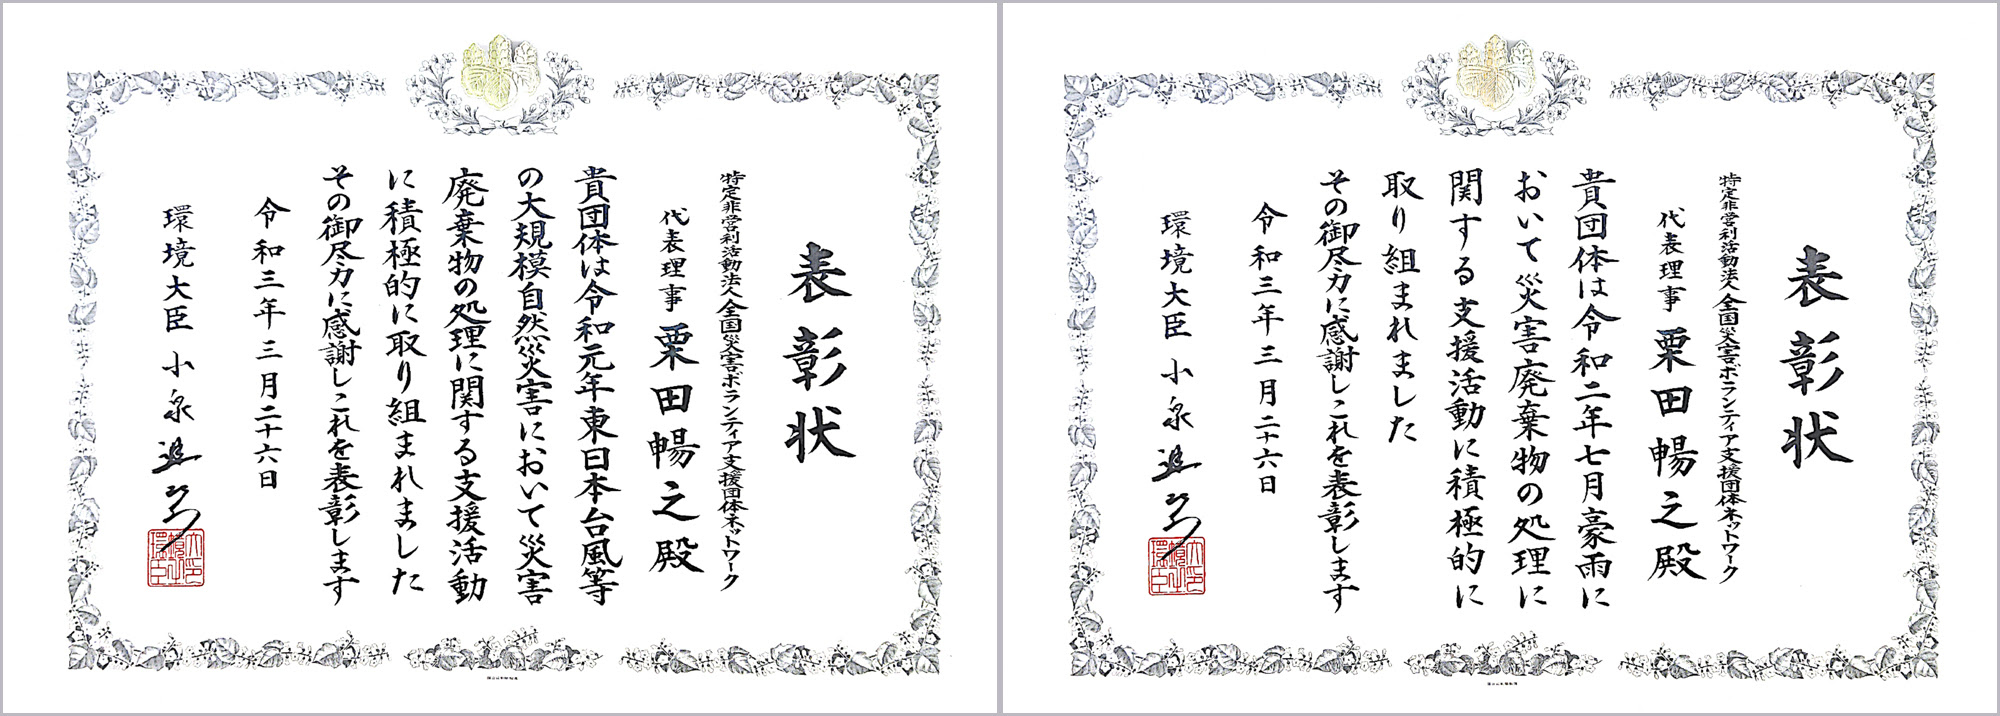 表彰状
特定非営利活動法人全国災害ボランティア支援団体ネットワーク
代表理事 栗田暢之殿
貴団体は令和元年東日本台風等
の大規模自然災害において災害
廃棄物の処理に関する支援活動
に積極的に取り組まれました
その御尽力に感謝しこれを表彰します
令和三年三月二十六日
環境大臣 小泉進次郎
表彰状
特定非営利活動法人全国災害ボランティア支援団体ネットワーク
代表理事 栗田暢之殿
貴団体は令和二年七月豪雨に
おいて災害廃棄物の処理に
関する支援活動に積極的に
取り組まれました
その御尽力に感謝しこれを表彰します
令和三年三月二十六日
環境大臣 小泉進次郎